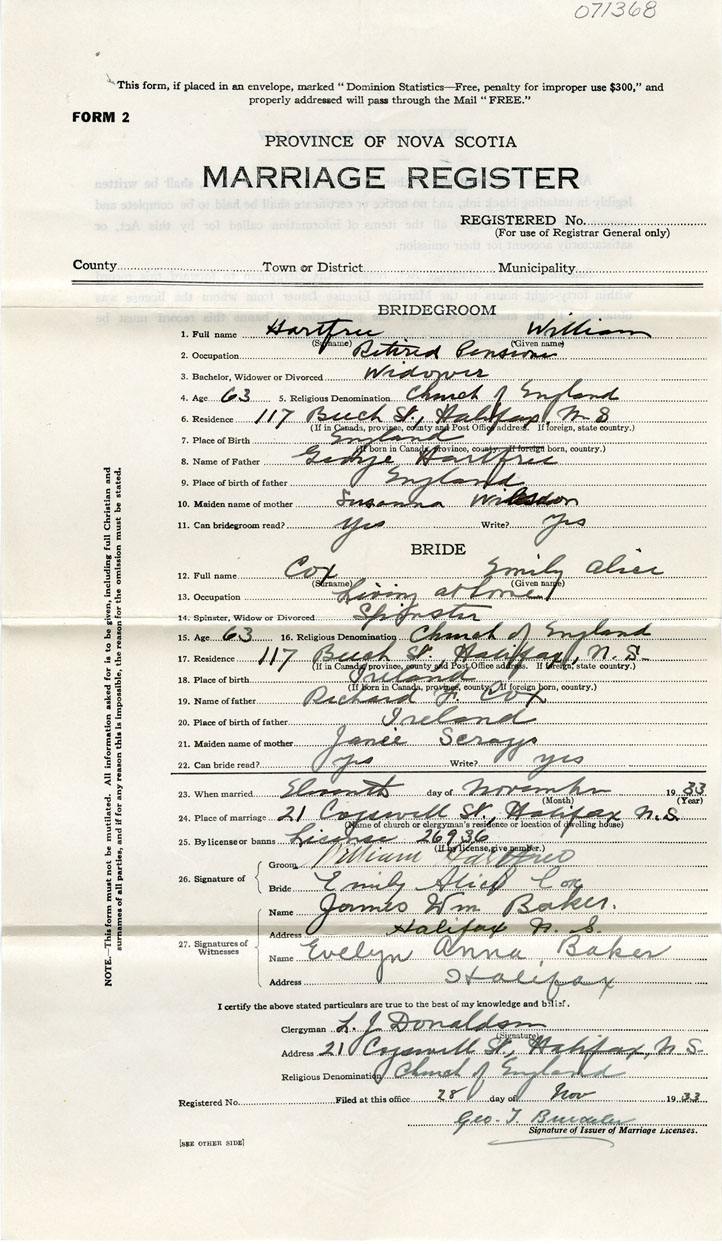 071368
This form, if placed in an envelope, marked “ Dominion Statistics—Free, penalty for improper use $300,” and
properly addressed will pass through the Mail “ FREE.”
FORM 2
PROVINCE OF NOVA SCOTIA
MARRIAGE REGISTER
REGISTERED No.
(For use of Registrar General only)
County Town or District Municipality
BRIDEGROOM
1. Full name Hartfree William
(Surname) (Given name)
2. Occupation Retired Pensioner
3. Bachelor, Widower or Divorced Widower
4. Age 63 5. Religious Denomination Church of England
6. Residence 117 Beech St., Halifax, N S
(If in Canada, province, county and Post Office address. If foreign, state country.)
7. Place of Birth England
(If born in Canada, province, county. If foreign born, country.)
8. Name of Father George Hartfree
9. Place of birth of father England
10. Maiden name of mother Susanna
11. Can bridegroom read? Yes Write? yes
BRIDE
12. Full name Cox Emily Alice
(Surname) (Given name)
13. Occupation Living at home
14. Spinster, Widow or Divorced Spinster
15. Age 63 16. Religious Denomination Church of England
17. Residence 117 Beech St. Halifax, N. S.
(If in Canada, province, county and Post Office address. If foreign, state country.)
18. Place of birth Ireland
(If born in Canada, province, county. If foreign born, country.)
19. Name of father Richard Cox
20. Place of birth of father Ireland
21. Maiden name of mother Janie
22. Can bride read? yes Write? yes
23. When married Eleventh day of November 1933
(Month) (Year)
24. Place of marriage 21 Cogswell St., Halifax N.S.
(Name of church or clergyman's residence or location of dwelling house)
25. By license or banns License 26936
(If by license, give number.)
26. Signature of
Groom William Hartfree
Bride Emily Alice Cox
27. Signatures of Witnesses
Name James Wm Baker.
Address Halifax N. S.
Name Evelyn Anna Baker
Address Halifax
I certify the above stated particulars are true to the best of my knowledge and belief.
Clergyman L. J. Donaldson
(Signature)
Address 21 Cogswell St., Halifax, N S.
Religious Denomination Church of England
Registered No. Filed at this office 28 day of Nov 1933
Geo. T.
Signature of Issuer of Marriage Licenses.
[SEE OTHER SIDE]
NOTE.—This form must not be mutilated. All information asked for is to be given, including full Christian and
surnames of all parties, and if for any reason this is impossible, the reason for the omission must be stated.